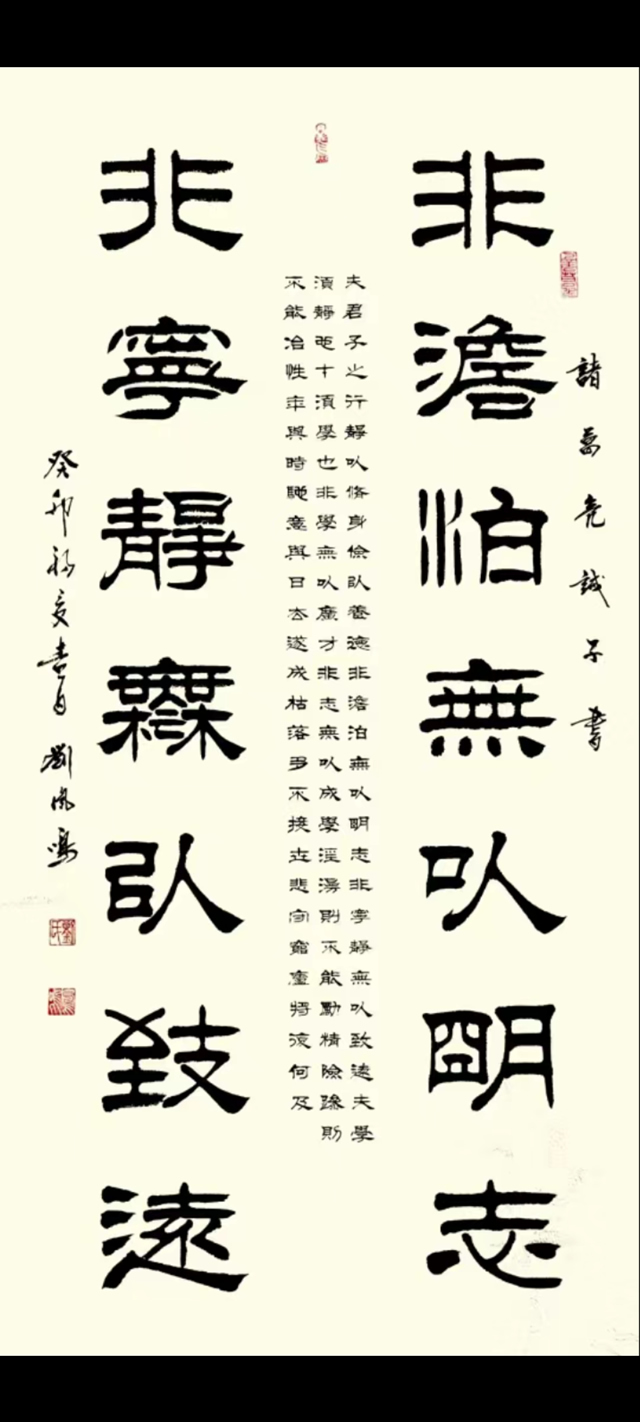 諸葛亮誡子書
非澹泊無以明志
夫君子之行靜以脩身儉以養德非澹泊無以明志非寧靜無以致遠夫學
須靜也才須學也非學無以廣才非志無以成學淫漫則不能勵精險躁則
不能冶性年與時馳意與日去遂成枯落多不接世悲守窮廬將復何及
非寧靜無以致遠
癸卯初夏書 劉鳳鳴
劉氏